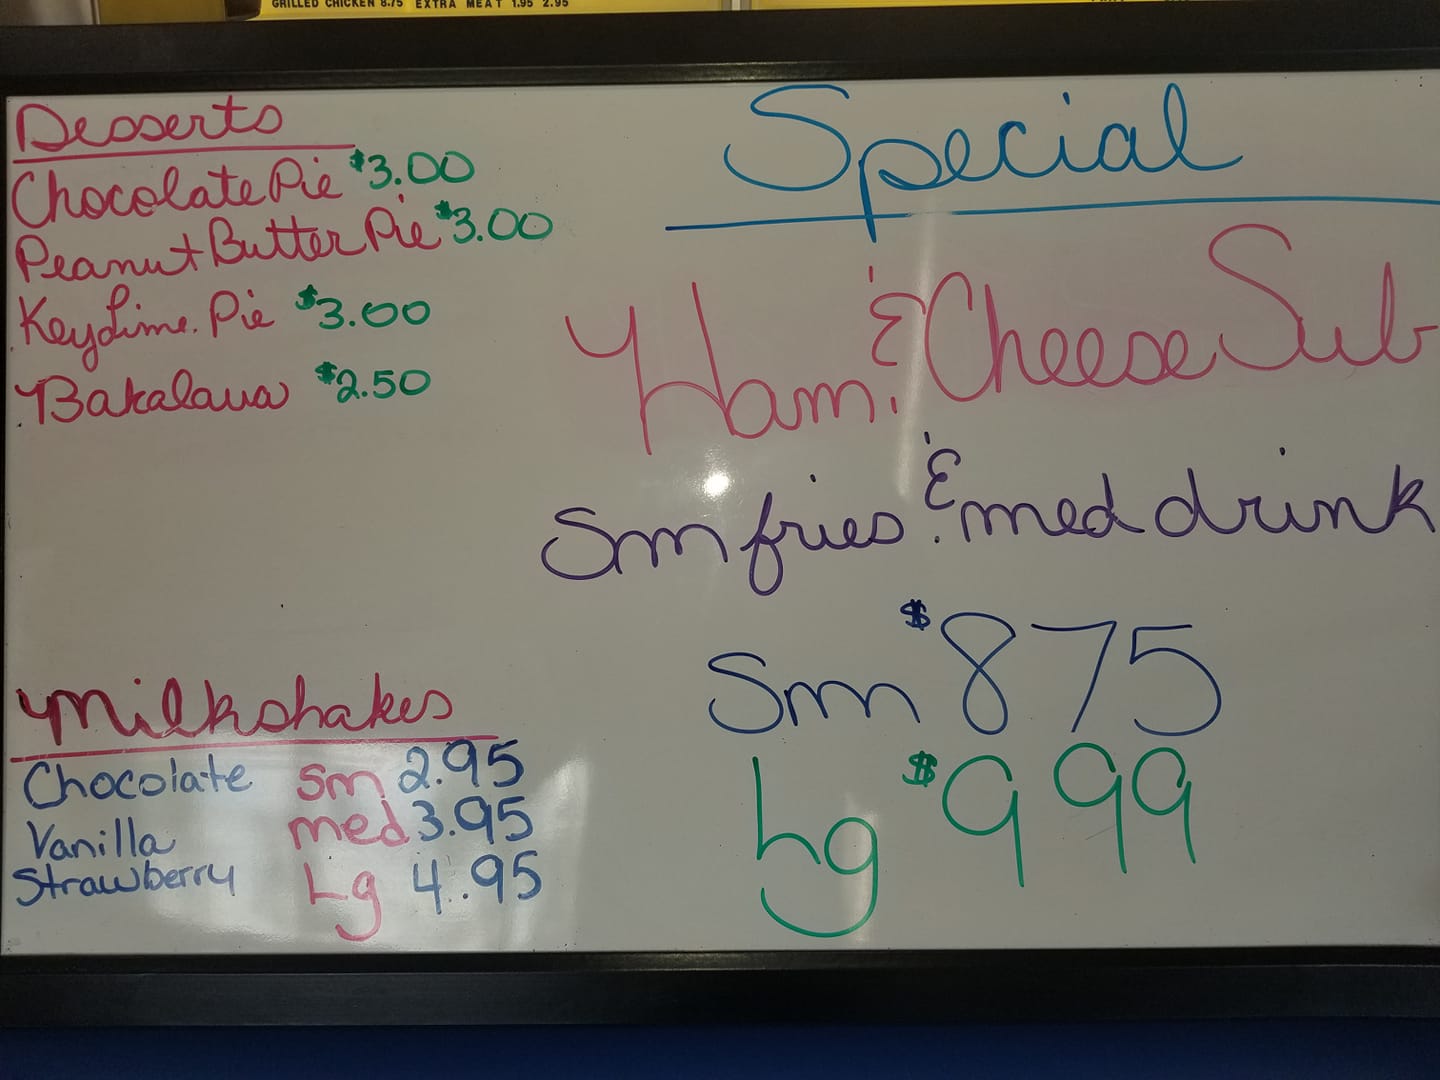 GRILLED CHICKEN 8.75 EXTRA MEAT 1.95 2.95
Desserts
Chocolate Pie $3.00
Peanut Butter Pie $3.00
Key Lime Pie $3.00
Bakalava $2.50
Milkshakes
Chocolate sm 2.95
Vanilla med 3.95
Strawberry Lg 4.95
Special
Ham & Cheese Sub
Sm fries & med drink
Sm $875
Lg $999